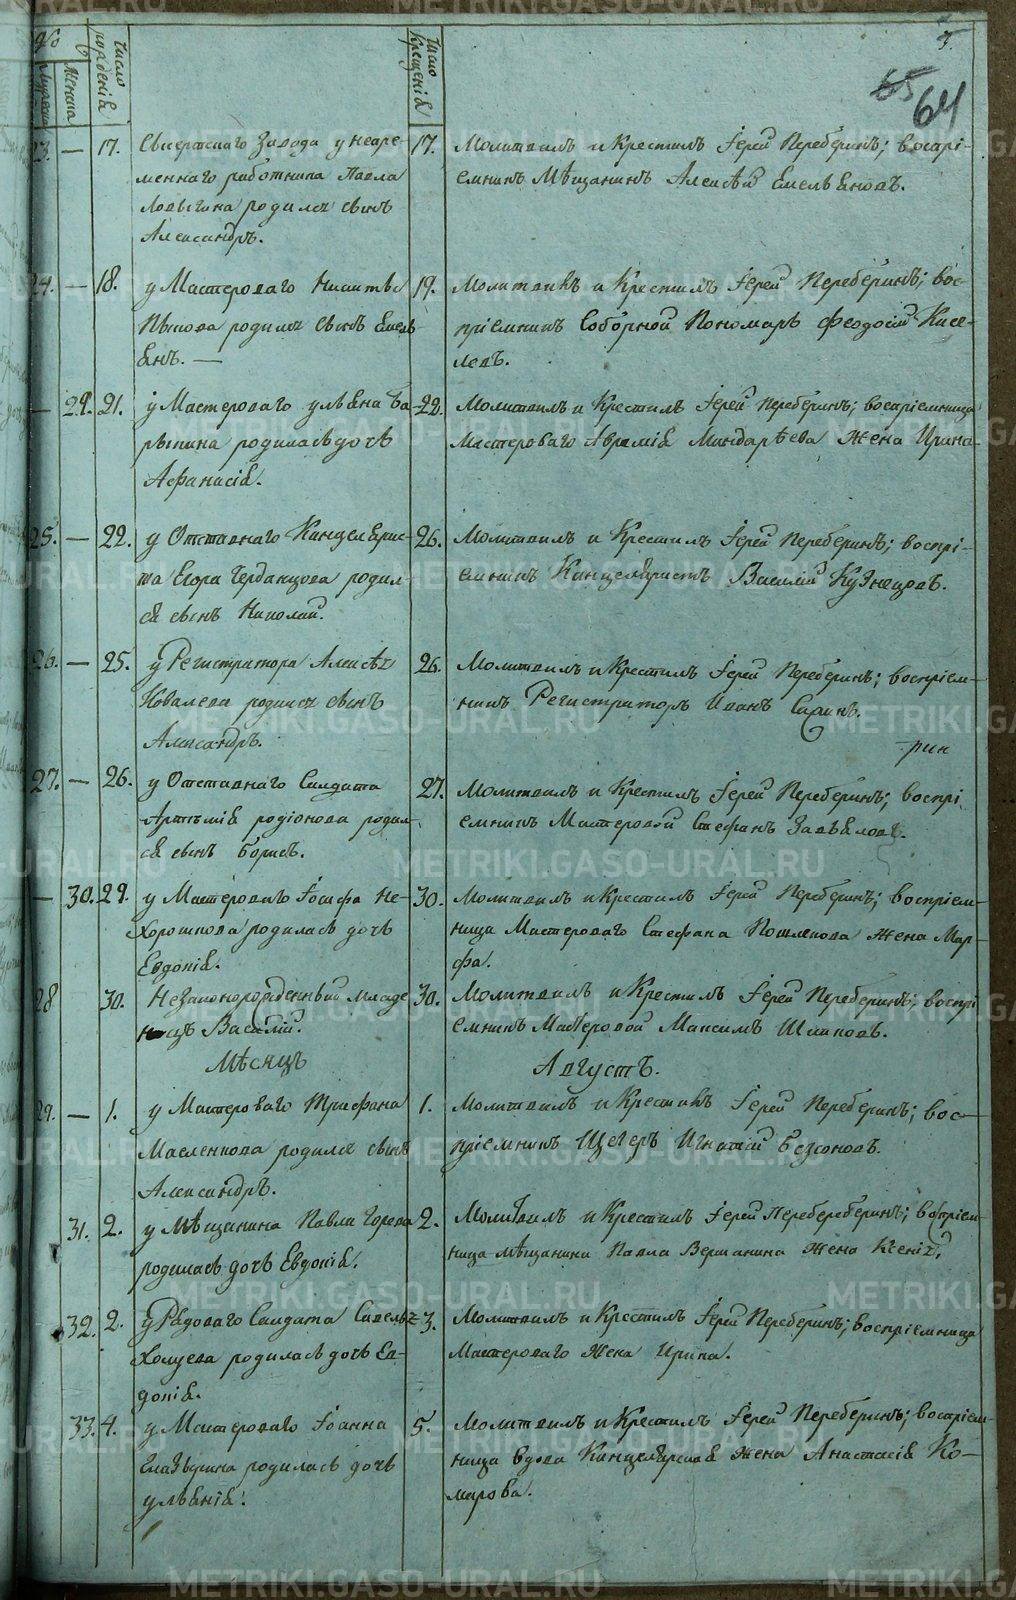 65 64
Число рожденія
Число Крещенія
Женска
23. — 17. Сысертскаго Завода у непре-
меннаго работника Павла
родился сынъ
Александръ.
17. Молитвилъ и Крестилъ Іерей Переберинъ; воспрі-
емникъ Мѣщанинъ Алексѣй Емельяновъ.
24. — 18. у Мастероваго Никиты
родился сынъ Емель-
янъ. —
19. Молитвилъ и Крестилъ Іерей Переберинъ; вос-
пріемникъ Соборной Пономарь Феодосій Кисе-
левъ.
— 29. 21. у Мастероваго Ульяна Ба-
рыкина родилась дочь
Афанасія.
22. Молитвилъ и Крестилъ Іерей Переберинъ; воспріемница
Мастероваго Аврамія Миндарѣева Жена Ирина
25. — 22. у Отставнаго Канцеляри-
ста Егора Черданцова родил-
ся сынъ Николай.
26. Молитвилъ и Крестилъ Іерей Переберинъ; воспрі-
емникъ Канцеляристъ Василій Кузнецовъ.
26. — 25. у Регистратора Алексѣя
Ковалева родился сынъ
Александръ.
26. Молитвилъ и Крестилъ Іерей Переберинъ; воспріем-
никъ Регистраторъ Иванъ
рин
27. — 26. у Отставнаго Салдата
Артемія родіонова родил-
ся сынъ борисъ.
27. Молитвилъ и Крестилъ Іерей Переберинъ; воспрі
емникъ Мастеровой Стефанъ Завьяловъ.
— 30. 29. у Мастероваго Іосифа Не-
хорошкова родилась дочь
Евдокія.
30. Молитвилъ и Крестилъ Іерей Переберинъ; воспріем-
ница Мастероваго Стефана Жена Мар-
фа.
28 30. Незаконорожденный младе
нецъ Василій.
30. Молитвилъ и Крестилъ Іерей Переберинъ; воспрі
емникъ Мастеровой Максимъ
Мѣсяцъ Августъ.
29. — 1. у Мастероваго Трифана
Масленкова родился сынъ
Александръ.
1. Молитвилъ и Крестилъ Іерей Переберинъ; вос-
пріемникъ Игнатій безсоновъ.
31. 2. у Мѣщанина Павла
родилась дочь Евдокія.
2. Молитвилъ и Крестилъ Іерей Перебереберинъ; воспріем-
ница мѣщанина Павла Вершинина Жена Ксенія.
32. 2. у Рядоваго Салдата Савелья
Холуева родилась дочь Ев-
докія.
3. Молитвилъ и Крестилъ Іерей Переберинъ; воспріемница
Мастероваго Жена Ирина.
33. 4. у Мастероваго Іоанна
Глазырина родилась дочь
ульянія.
5. Молитвилъ и Крестилъ Іерей Переберинъ; воспріем-
ница вдова Канцелярская жена Анастасія Ко-
марова.
METRIKI.GASO-URAL.RU